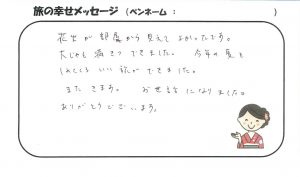 旅の幸せメッセージ（ペンネーム：　　　　）
花火が部屋から見えてよかったです。
大じゃも満きつできました。今年の夏を
しめくくるいい旅ができました。
また きます。お世話になりました。
ありがとうございます。